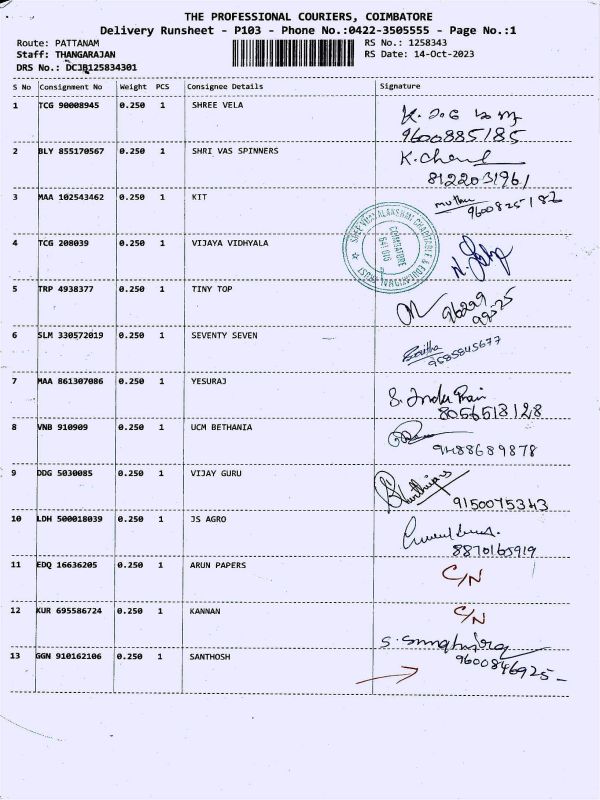 THE PROFESSIONAL COURIERS, COIMBATORE
Delivery Runsheet - P103 - Phone No.:0422-3505555 - Page No.:1
Route: PATTANAM
RS No.: 1258343
Staff: THANGARAJAN
RS Date: 14-Oct-2023
DRS No.: DCJB125834301
S No Consignment No Weight PCS Consignee Details Signature
1 TCG 90008945 0.250 1 SHREE VELA
9600885185
2 BLY 855170567 0.250 1 SHRI VAS SPINNERS K.Chand
8122031961
3 MAA 102543462 0.250 1 KIT muthu
9600825182
4 TCG 208039 0.250 1 VIJAYA VIDHYALA
COIMBATORE
641 016
5 TRP 4938377 0.250 1 TINY TOP
6 SLM 330572019 0.250 1 SEVENTY SEVEN
9585845677
7 MAA 861307086 0.250 1 YESURAJ
8056518128
8 VNB 910909 0.250 1 UCM BETHANIA
9488689878
9 DDG 5030085 0.250 1 VIJAY GURU
9150075343
10 LDH 500018039 0.250 1 JS AGRO
8870165919
11 EDQ 16636205 0.250 1 ARUN PAPERS C/N
12 KUR 695586724 0.250 1 KANNAN C/N
13 GGN 910162106 0.250 1 SANTHOSH
9600846925